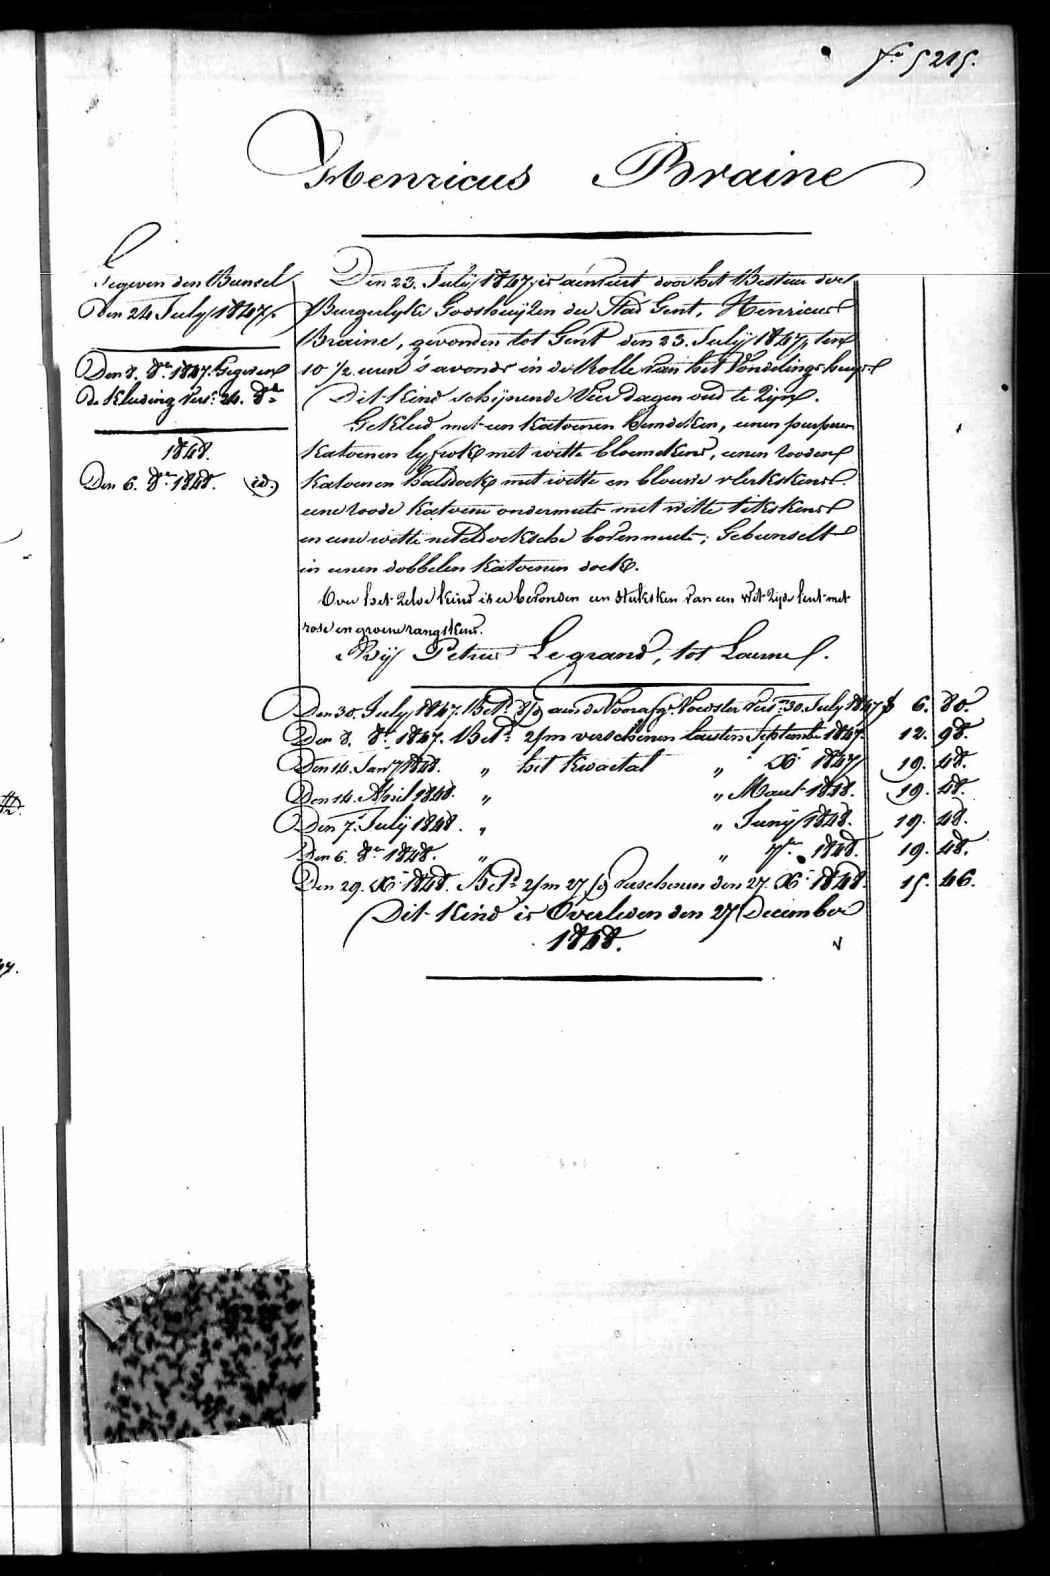 f.° 5215.
Henricus Braine
Gegeven den Bunsel
Den 24 July 1847.
Den 8. 8.re 1847. Gegeven
de Kleeding vers: 24. d.o
1848.
Den 6. 8.re 1848. id.
Den 23. July 1847, is aenveirt door het Bestuer der
Burgerlyke Godshuyzen der Stad Gent, Henricus
Braine, gevonden tot Gent den 23. July 1847, ten
10 ½ uren 's avonds in de Rolle van het Vondelingshuys
Dit kind schijnende Vier dagen oud te Zijn.
Gekleed met een katoenen hemdeken, eenen purperen
katoenen lyfrok met witte bloemekens, eenen rooden
katoenen halsdoek met witte en blouwe vlekskens
eene roode katoene ondermuts met witte titskens
en eene witte neteldoeksche bovenmuts; Gebunselt
in eenen dobbelen katoenen doek.
Over het zelve kind is er bevonden een stuksken van een wit zijde lint met
rose en groene rangskens.
Bij Petrus Legrand, tot
Den 30. July 1847. Bet.d 8/d aen de Voorafg. Voedster vers: 30. July 1847 f 6. 80.
Den 8. 8.re 1847. Bet.d 2/m verschenen laetsten September 1847. 12. 98.
Den 14. Jan.y 1848. „ het kwartal „ X.re 1847. 19. 48.
Den 14. April 1848. „ „ Maert 1848. 19. 48.
Den 7. July 1848. „ „ Junij 1848. 19. 48.
Den 6. 8.re 1848. „ „ 7.re 1848. 19. 48.
Den 29. X.re 1848. Bet.d 2/m 27/d verschenen den 27. X.re 1848. 15. 46.
Dit kind is Overleden den 27 December
1848.